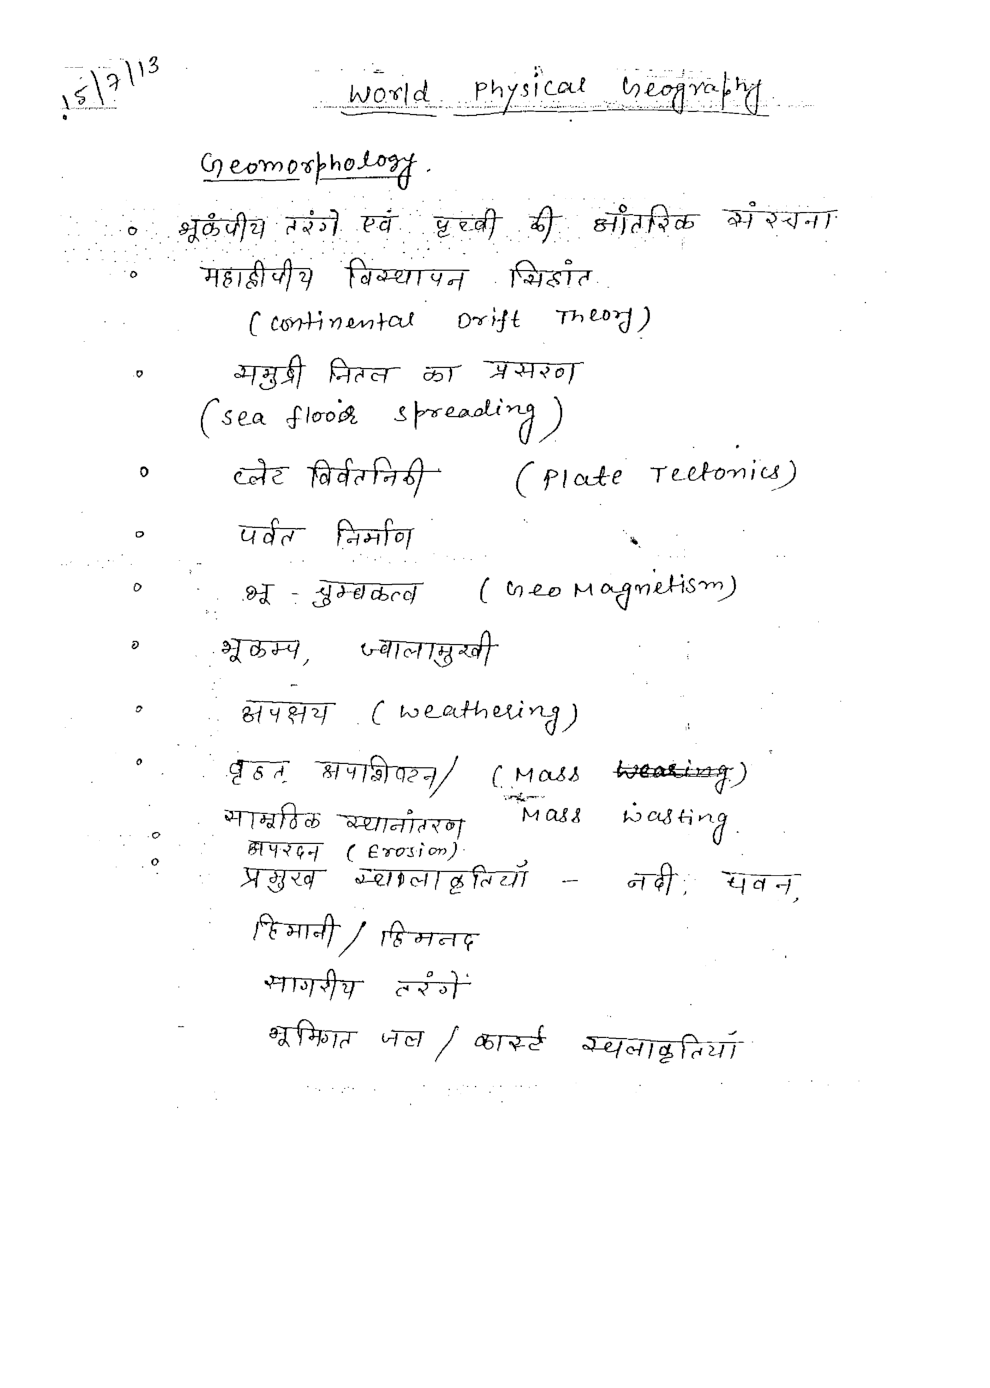 15/7/13
World Physical Geography
Geomorphology.
० भूकंपीय तरंगे एवं पृथ्वी की आंतरिक संरचना
० महाद्वीपीय विस्थापन सिद्धांत
(Continental Drift Theory)
० समुद्री नितल का प्रसरण
(Sea floor spreading)
० प्लेट विर्वतनिकी (Plate Tectonics)
० पर्वत निर्माण
० भू - चुम्बकत्व (Geo Magnetism)
० भूकम्प, ज्वालामुखी
० अपक्षय (Weathering)
० वृहत् अपशिवटन/ (Mass weasing)
सामूहिक स्थानांतरण Mass Wasting.
० अपरदन (Erosion).
० प्रमुख स्थलाकृतियाँ - नदी, पवन,
हिमानी / हिमनद
सागरीय तरंगें
भूमिगत जल / कार्स्ट स्थलाकृतियाँ